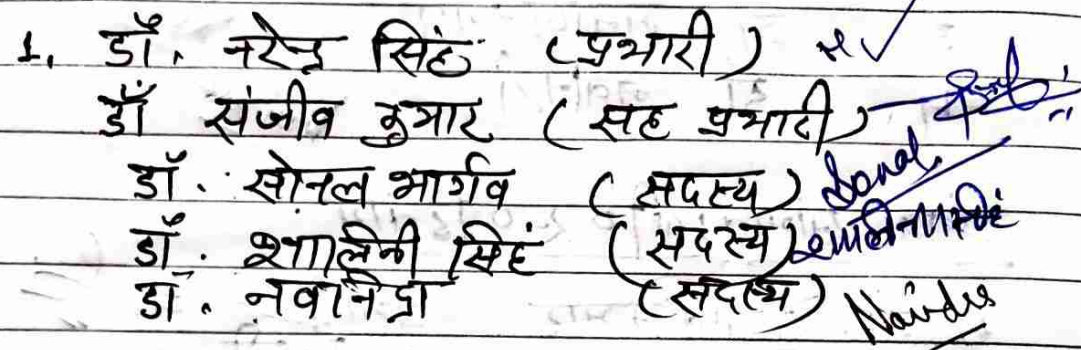 1. डॉ. नरेन्द्र सिंह (प्रभारी)
डॉ संजीव कुमार (सह प्रभारी)
डॉ. सोनल भार्गव (सदस्य) Sonal
डॉ. शालिनी सिंह (सदस्य) शालिनी सिंह
डॉ. नवनिद्रा (सदस्य)